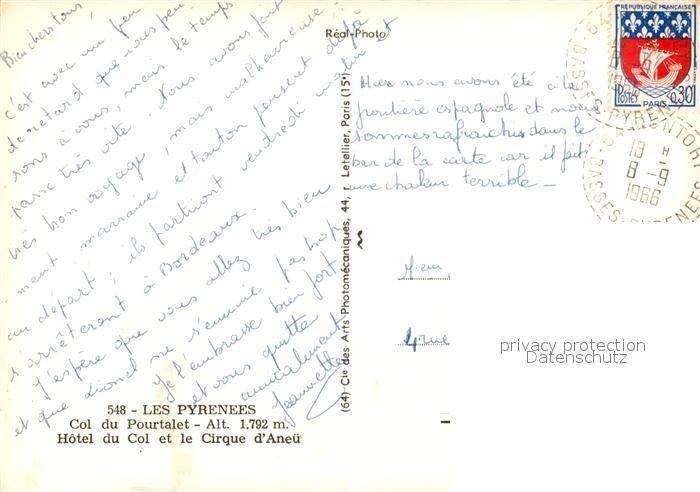 Bien chers tous,
C'est avec un peu
de retard que nous pen
sons à vous, mais le temps
passe très vite. Nous avons fait
très bon voyage, mais malheureuse
ment marraine et tonton pensent déjà
au départ ; ils partiront vendredi matin et
s'arrêteront à Bordeaux.
J'espère que vous allez très bien
et que Lionel ne s'ennuie pas trop
Je l'embrasse bien fort
et vous quitte
amicalement
Jeannette
548 - LES PYRENEES
Col du Pourtalet - Alt. 1.792 m.
Hôtel du Col et le Cirque d'Aneü
Réal-Photo
(64) Cie des Arts Photomécaniques, 44, r. Letellier, Paris (15e)
Hier nous avons été à la
frontière espagnole et nous
sommes rafraichis dans le
bar de la carte car il fait
une chaleur terrible _
4 rue
REPUBLIQUE FRANÇAISE
POSTES PARIS 0,30
18 H
8 - 9
1966
BASSES-PYRENEES
privacy protection
Datenschutz